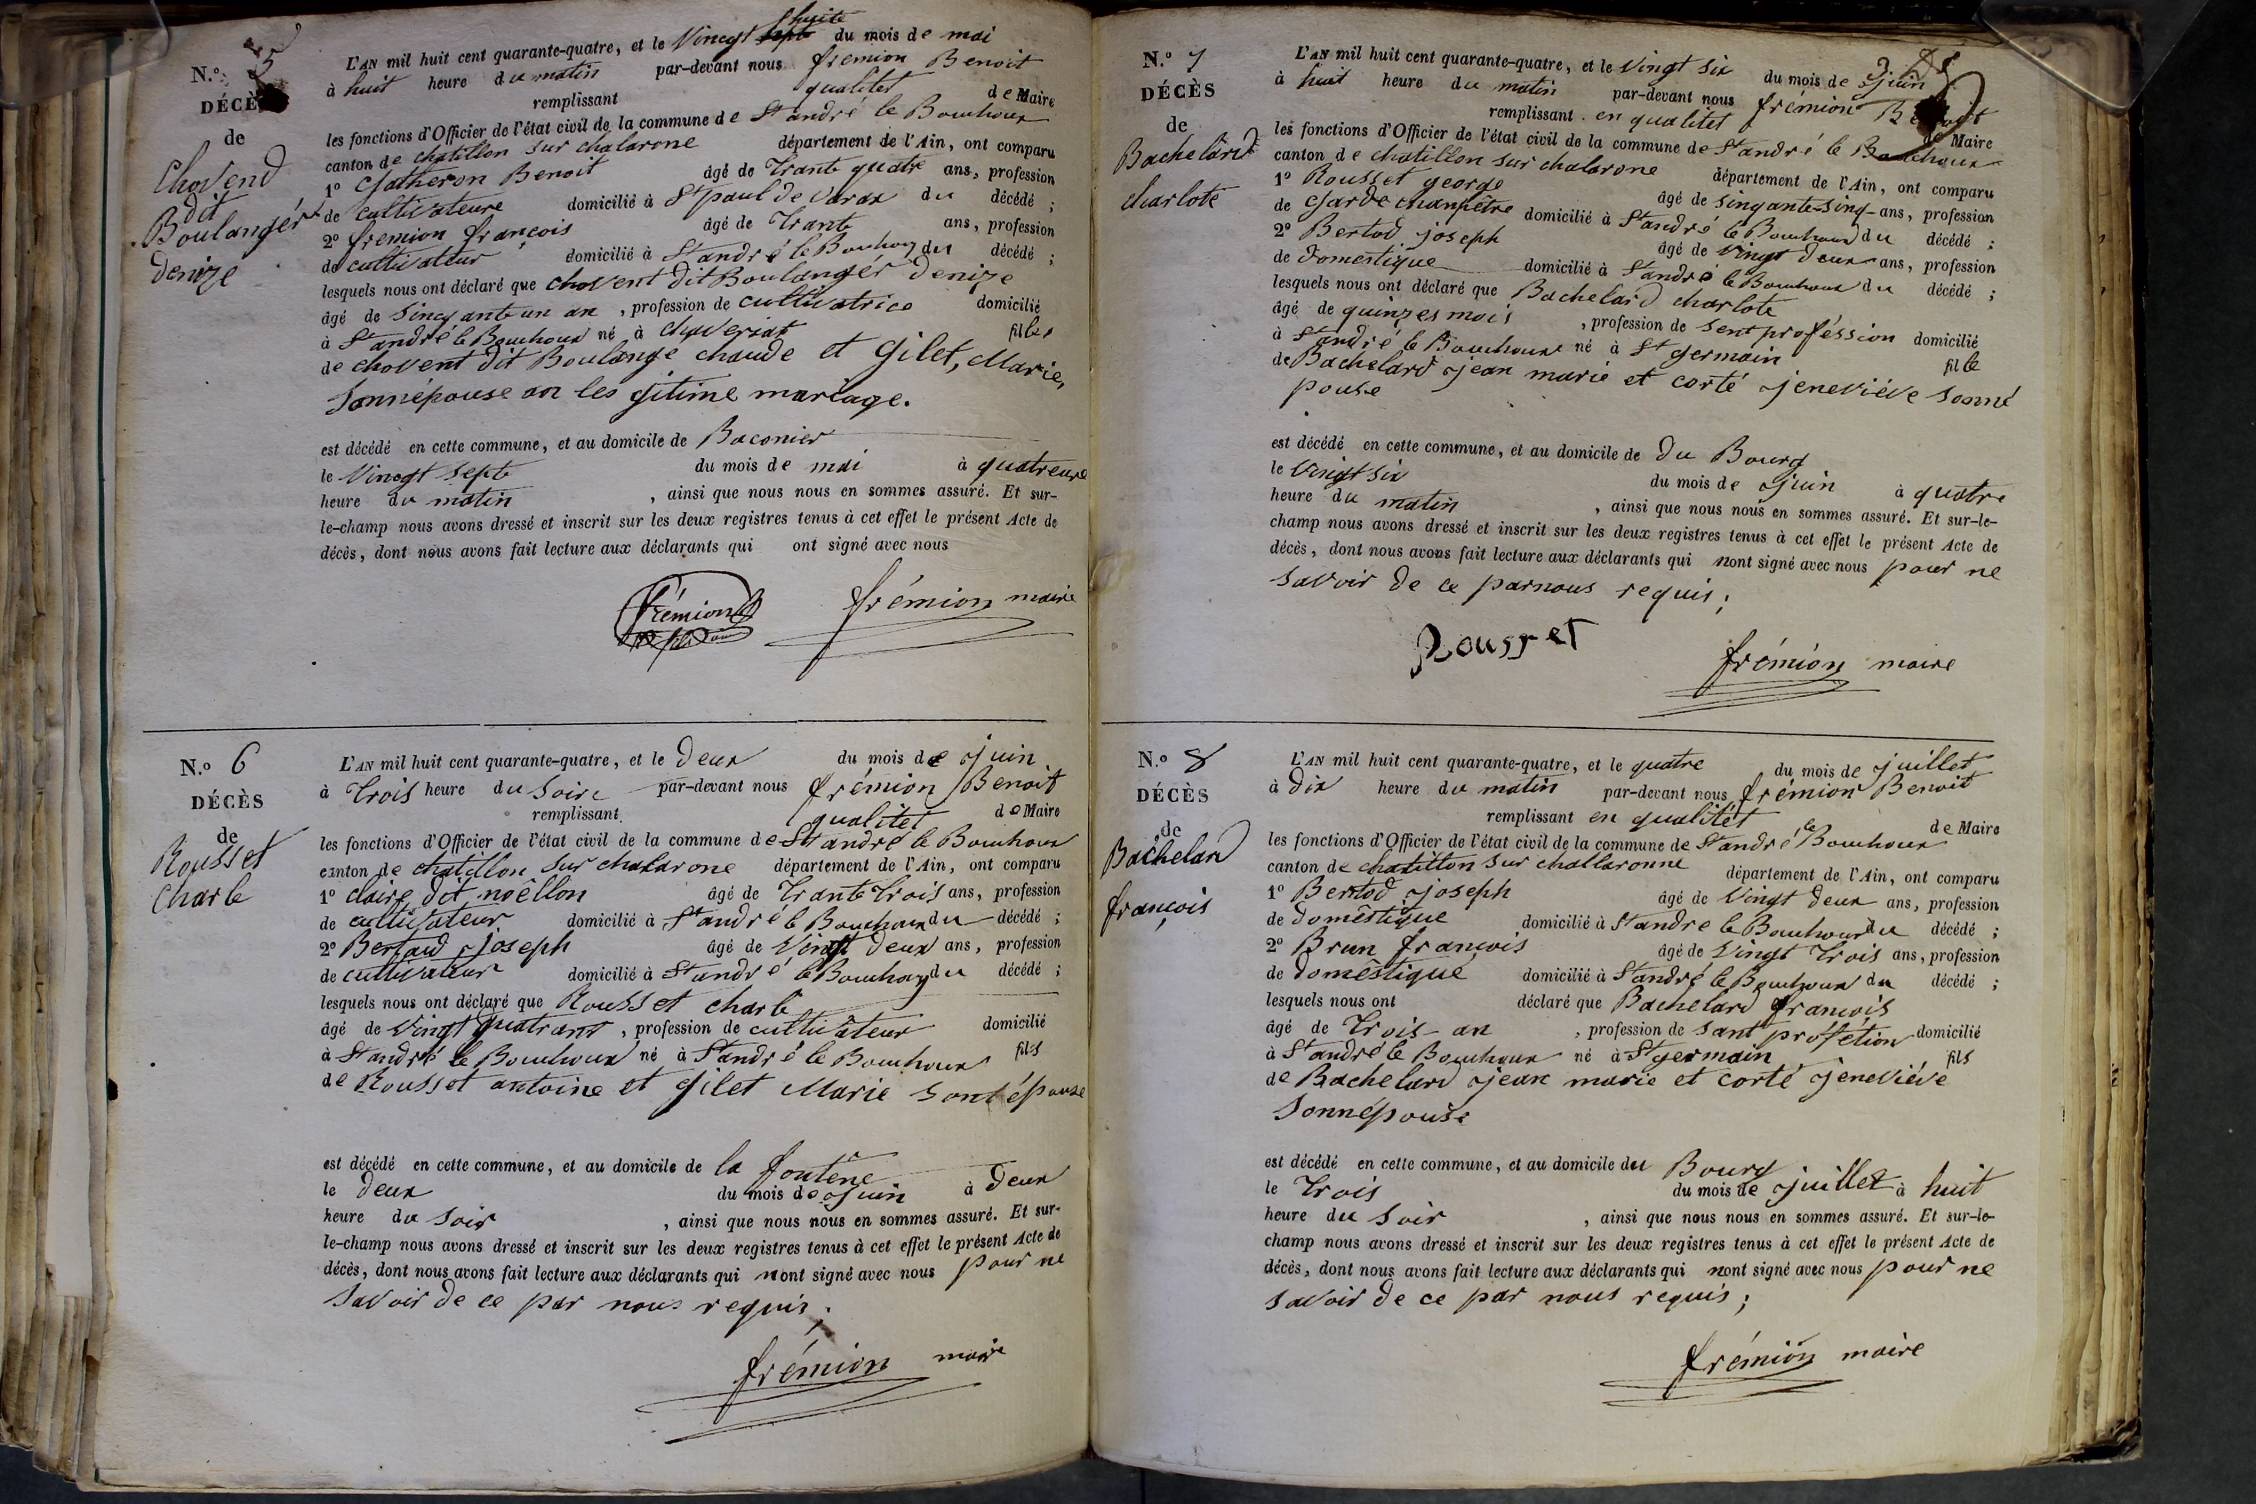 N.º 5
DÉCÈS
de
Chovend
dit
Boulangér
denize
L'AN mil huit cent quarante-quatre, et le Vinegt huite sept du mois de mai
à huit heure du matin par-devant nous fremion Benoit
remplissant qualitet de Maire
les fonctions d'Officier de l'état civil de la commune de St andré le Bouchoux
canton de chatillon sur chalarone département de l'Ain, ont comparu
1º Gatheron Benoit âgé de Trante quatre ans, profession
de cultivateure domicilié à St paul de Varax du décédé ;
2º fremion françois âgé de Trante ans, profession
de cultivateur domicilié à St andré le Bouhoy du décédé ;
lesquels nous ont déclaré que chovent dit Boulangér denize
âgé de Sinqante un an , profession de cultivatrice domicilié
à St andré le Bouchoux né à chaveriat fille
de chovent dit Boulange chaude et Gilet, Marie,
Sonnépouse an les gitime mariage.
est décédé en cette commune, et au domicile de Baconier
le Vinegt sept du mois de mai à quatreure
heure du matin , ainsi que nous nous en sommes assuré. Et sur-
le-champ nous avons dressé et inscrit sur les deux registres tenus à cet effet le présent Acte de
décès, dont nous avons fait lecture aux déclarants qui ont signé avec nous
frémion frémion maire
N.º 6
DÉCÈS
de
Rousset
Charle
L'AN mil huit cent quarante-quatre, et le deux du mois de juin
à Trois heure du Soire par-devant nous frémion Benoit
remplissant qualitet de Maire
les fonctions d'Officier de l'état civil de la commune de St andré le Bouchoux
canton de chatillon sur chalarone département de l'Ain, ont comparu
1º claire dit noêllon âgé de Trante Trois ans, profession
de cultivateur domicilié à St andré le Bouchoux du décédé ;
2º Bertaud joseph âgé de Vingt deux ans, profession
de cultivateur domicilié à St andré le Bouchoy du décédé ;
lesquels nous ont déclaré que Rousset charle
âgé de Vingt quatrant , profession de cultivâteur domicilié
à St andré le Bouchoux né à St andré le Bouchoux fils
de Rousset antoine et Gilet Marie sont épouse
est décédé en cette commune, et au domicile de la fontêne
le deux du mois de juin à deux
heure du soir , ainsi que nous nous en sommes assuré. Et sur-
le-champ nous avons dressé et inscrit sur les deux registres tenus à cet effet le présent Acte de
décès, dont nous avons fait lecture aux déclarants qui nont signé avec nous pour ne
savoir de ce par nous requis ;
frémion maire
N.º 7
DÉCÈS
de
Bachelard
charlote
L'AN mil huit cent quarante-quatre, et le vingt six du mois de juin
à huit heure du matin par-devant nous frémion Benoit
remplissant en qualitet de Maire
les fonctions d'Officier de l'état civil de la commune de St andré le Bouchoux
canton de chatillon sur chalarone département de l'Ain, ont comparu
1º Rousset george âgé de sinqante-sinq ans, profession
de Garde chanpêtre domicilié à St andré le Bouchoux du décédé ;
2º Bertod joseph âgé de Vingt deux ans, profession
de domestique domicilié à St andré le Bouchoux du décédé ;
lesquels nous ont déclaré que Bachelard charlote
âgé de quinzes mois , profession de sent proféssion domicilié
à St andré le Bouchoux né à St germain fille
de Bachelard jean marie et corté jeneviéve sonné
pouse
est décédé en cette commune, et au domicile de du Bourg
le vingt six du mois de juin à quatre
heure du matin , ainsi que nous nous en sommes assuré. Et sur-le-
champ nous avons dressé et inscrit sur les deux registres tenus à cet effet le présent Acte de
décès, dont nous avons fait lecture aux déclarants qui nont signé avec nous pour ne
savoir de ce parnous requis ;
Rousset
frémion maire
N.º 8
DÉCÈS
de
Bachelard
françois
L'AN mil huit cent quarante-quatre, et le quatre du mois de juillet
à dix heure du matin par-devant nous frémion Benoit
remplissant en qualitét de Maire
les fonctions d'Officier de l'état civil de la commune de St andré le Bouchoux
canton de chatillon sur challaronne département de l'Ain, ont comparu
1º Bertod joseph âgé de Vingt deux ans, profession
de domêstique domicilié à St andre le Bouchoux du décédé ;
2º Brun françois âgé de Vingt Trois ans, profession
de domêstique domicilié à St andré le Bouchoux du décédé ;
lesquels nous ont déclaré que Bachelard françois
âgé de Trois an , profession de sant profétion domicilié
à St andré le Bouchoux né à St germain fils
de Bachelard jean marie et corté jeneviéve
Sonnépouse
est décédé en cette commune, et au domicile du Bourg
le Trois du mois de juillet à huit
heure du soir , ainsi que nous nous en sommes assuré. Et sur-le-
champ nous avons dressé et inscrit sur les deux registres tenus à cet effet le présent Acte de
décès, dont nous avons fait lecture aux déclarants qui nont signé avec nous pour ne
savoir de ce par nous requis ;
frémion maire